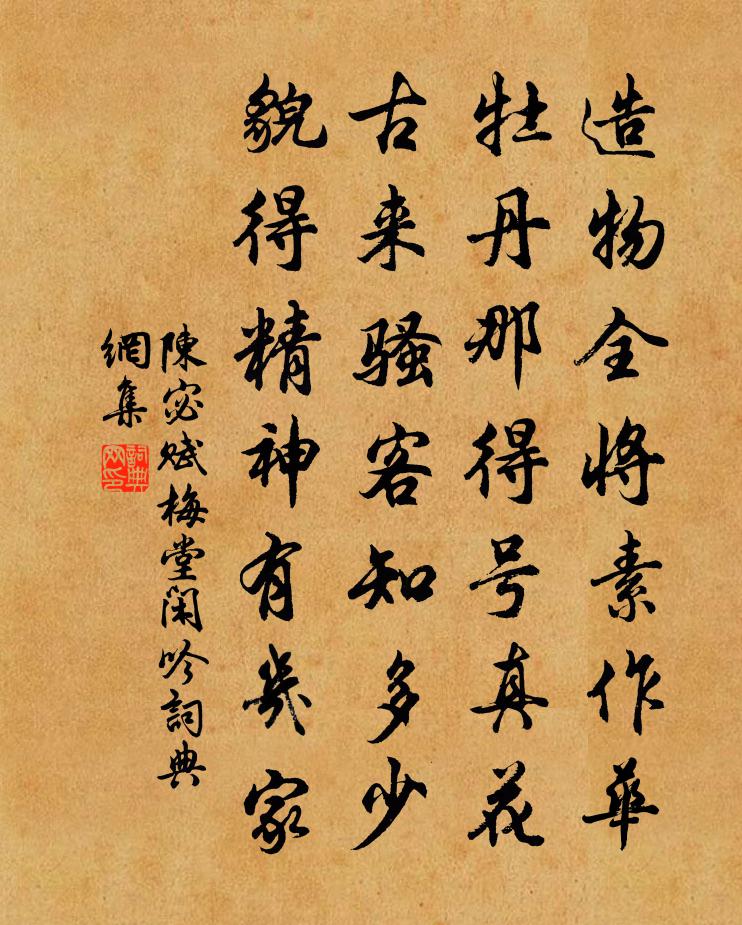 造物全将素作華
牡丹那得号真花
古来骚客知多少
貌得精神有幾家
陳宓赋梅堂闲吟詞典
網集
詞典
网印